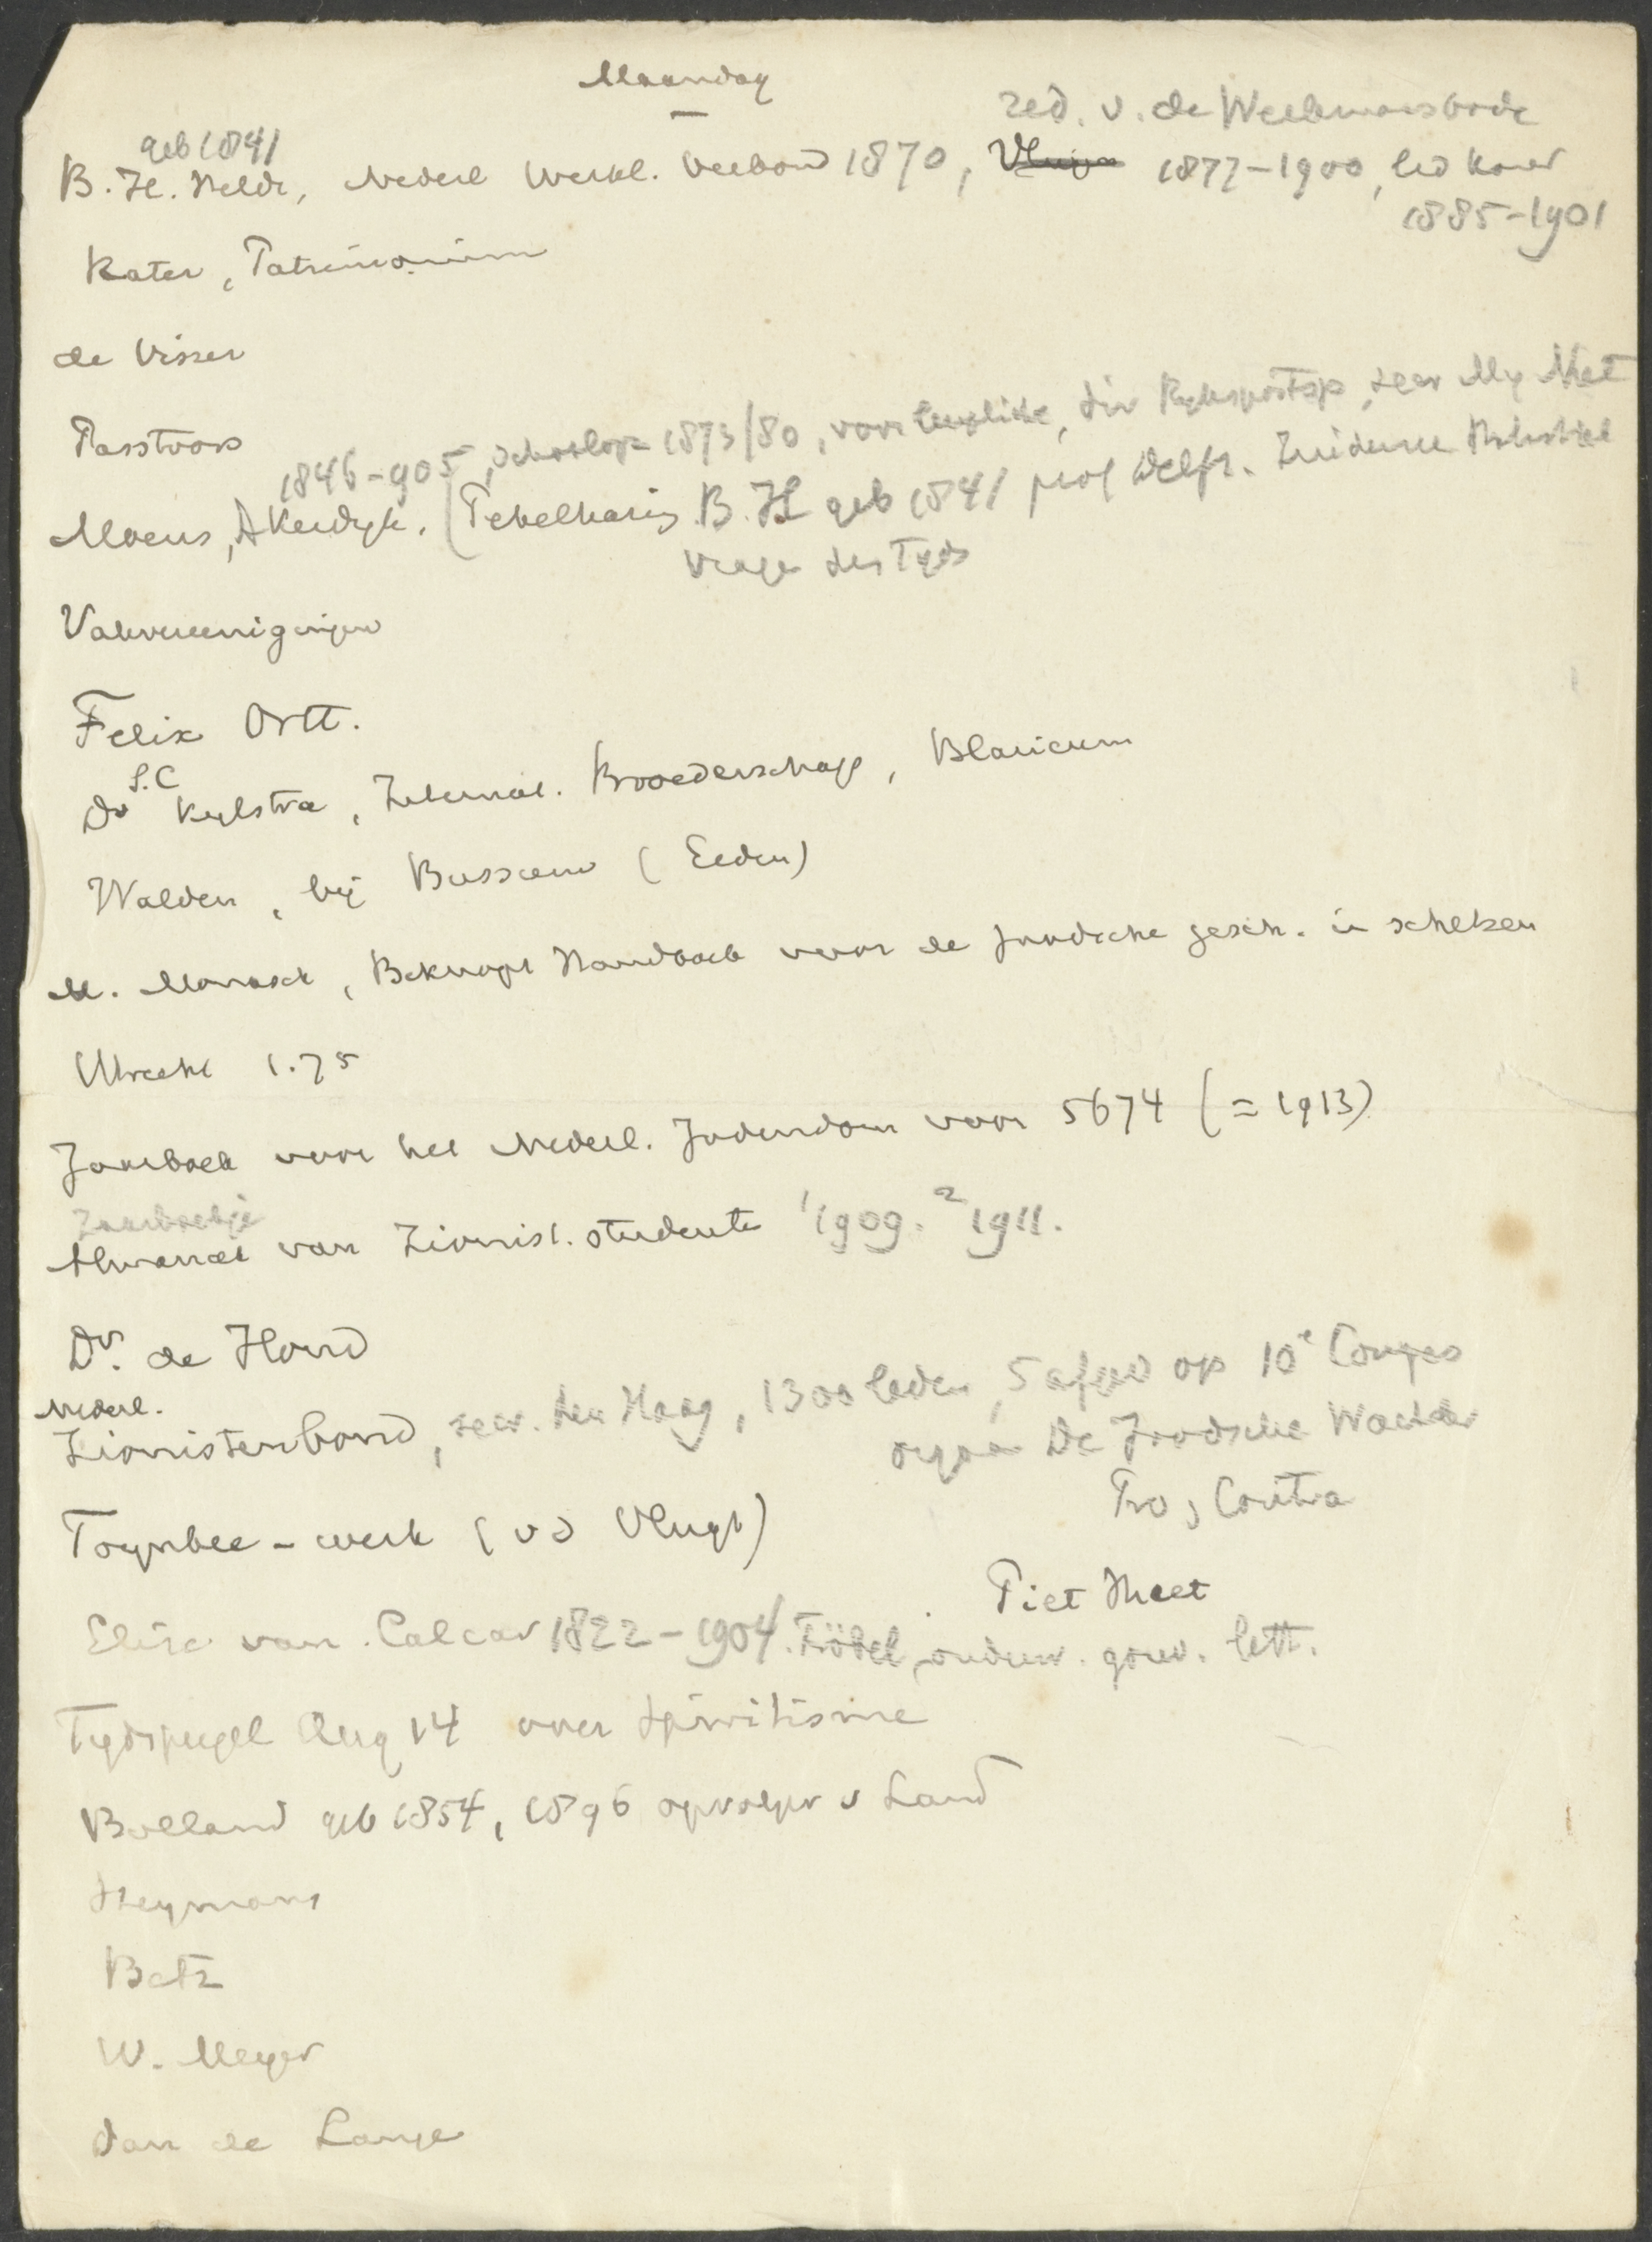 Maandag
red. v. de Werkmansbode
geb 1841
B. H. Heldt, Nederl Werkl. Verbond 1870, 1877-1900, lid Kamer
1885-1901
Kater, Patrimonium
de Visser
Pastoors
1846-905, schoolopz 1873/80, voor leerplicht, dir Rykspostsp, secr My Nut
Moens, A Kerdyk. (Pekelharing B. H geb 1841 prof Delft. Zuiderzee
Vragen des Tyds
Vakvereenigingen
Felix Ortt.
S.C
Dr Kylstra, Internat. Broederschap, Blaricum
Walden, bij Bussum (Eeden)
M. Monasch, Beknopt Handboek voor de Joodsche gesch. in schetsen
Utrecht 1.75
Jaarboek voor het Nederl. Jodendom voor 5674 (= 1913)
Jaarboekje
Almanak van Zionist. studente 1 1909. 2 1911.
Dr. de Hond
Nederl.
Zionistenbond, secr. den Haag, 1300 leden, 5 afgev op 10e Congres
orgaan De Joodsche Wachter
Pro & Contra
Toynbee-werk (vd Vlugt)
Piet
Elise van Calcar 1822-1904. Fröbel, onderw. gouv. lett.
Tydspiegel Aug 14 over spiritisme
Bolland geb 1854, 1896 opvolger v Land
Heymans
Betz
W. Meyer
Dan de Lange